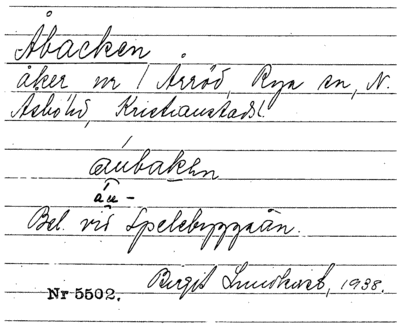 Åbacken
åker nr 1 Arröd, Rya sn, N.
Asbo hd, Kristianstads l.
áubaken
áu -
Bel. vid Spelebyggaån.
Birgit Lundkvist, 1938.
Nr 5502.